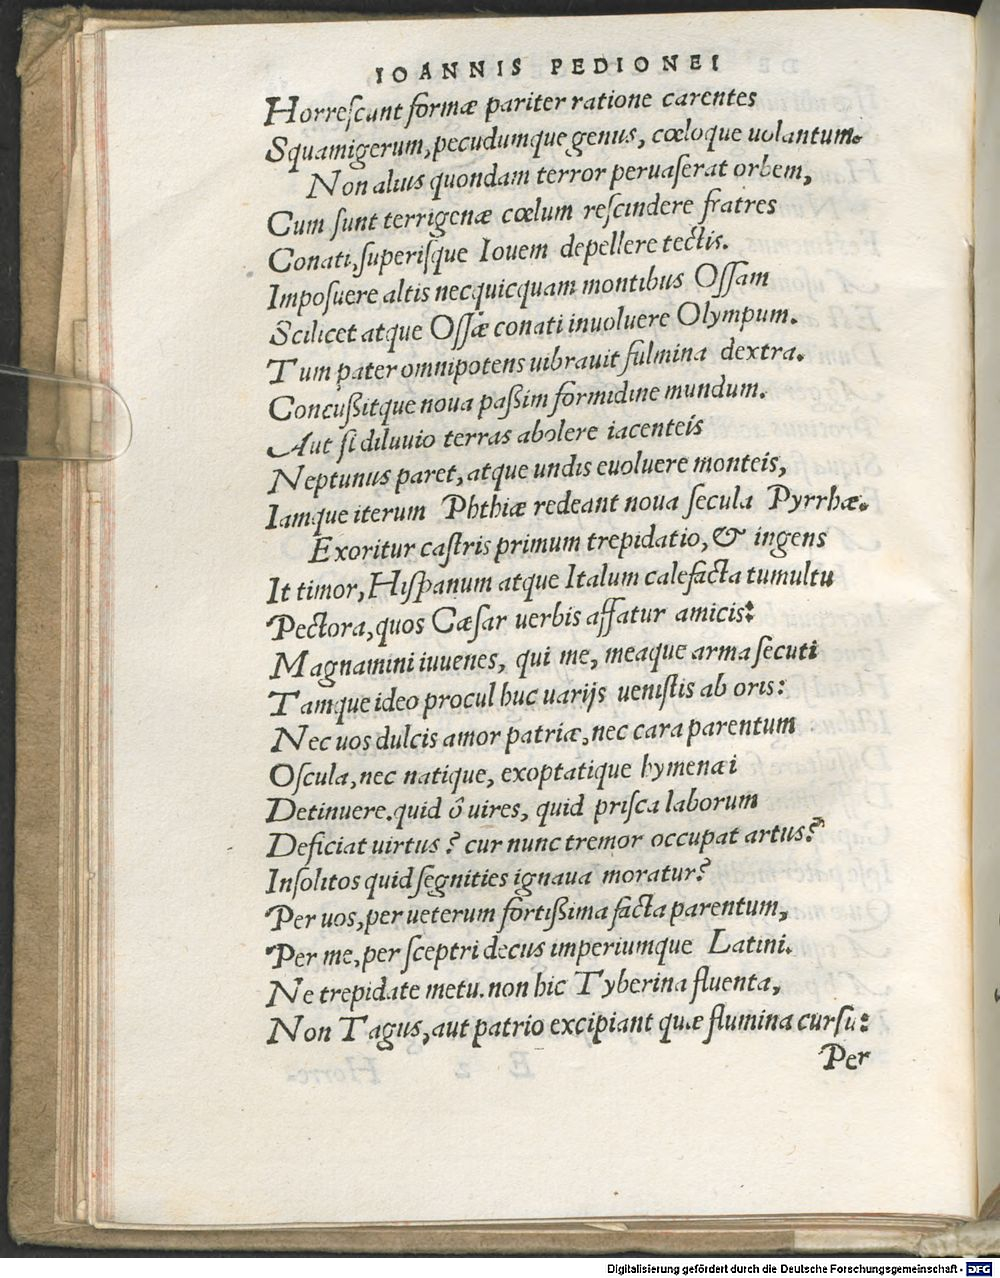 IOANNIS PEDIONEI
Horreſcunt formæ pariter ratione carentes
Squamigerum, pecudumque genus, cœloque uolantum.
Non alius quondam terror peruaſerat orbem,
Cum ſunt terrigenæ cœlum reſcindere fratres
Conati, ſuperiſque Iouem depellere tectis.
Impoſuere altis necquicquam montibus Oſſam
Scilicet atque Oſſæ conati inuoluere Olympum.
Tum pater omnipotens uibrauit fulmina dextra.
Concußitque noua paßim formidine mundum.
Aut ſi diluuio terras abolere iacenteis
Neptunus paret, atque undis euoluere monteis,
Iamque iterum Phthiæ redeant noua ſecula Pyrrhæ.
Exoritur caſtris primum trepidatio, & ingens
It timor, Hiſpanum atque Italum calefacta tumultu
Pectora, quos Cæſar uerbis affatur amicis:
Magnamini iuuenes, qui me, meaque arma ſecuti
Tamque ideo procul huc uarijs ueniſtis ab oris:
Nec uos dulcis amor patriæ, nec cara parentum
Oſcula, nec natique, exoptatique hymenæi
Detinuere. quid ô uires, quid priſca laborum
Deficiat uirtus? cur nunc tremor occupat artus?
Inſolitos quid ſegnities ignaua moratur?
Per uos, per ueterum fortißima facta parentum,
Per me, per ſceptri decus imperiumque Latini.
Ne trepidate metu. non hic Tyberina fluenta,
Non Tagus, aut patrio excipiant quæ flumina curſu:
Per
Digitalisierung gefördert durch die Deutsche Forschungsgemeinschaft - DFG